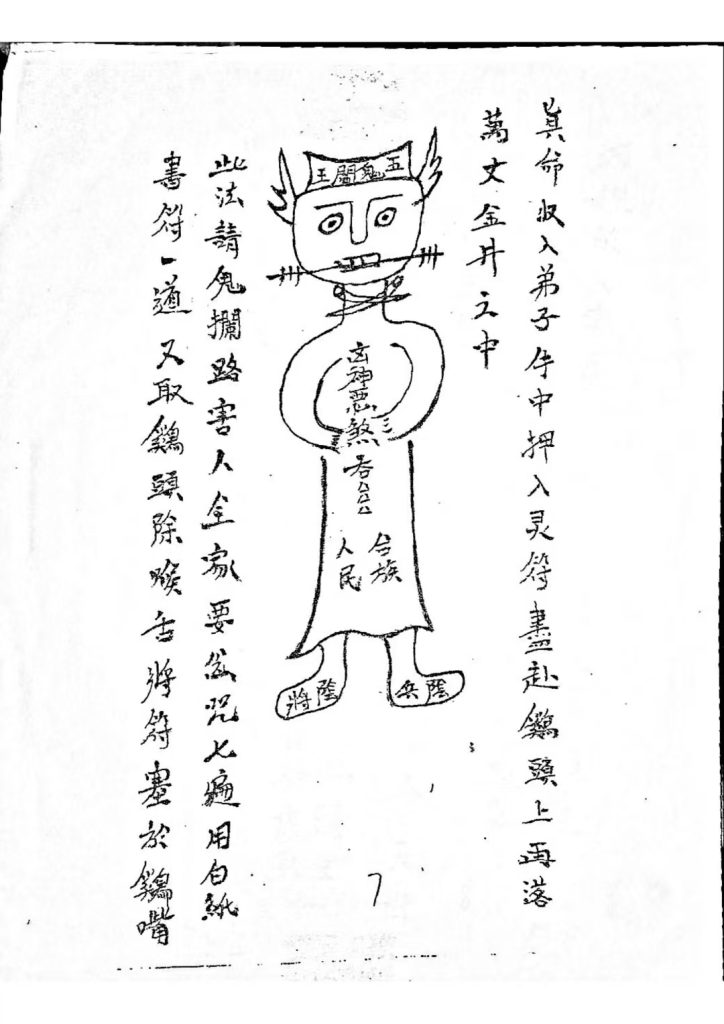 真命收入弟子件中押入灵符盡赴鷄頭上再落
萬丈金井之中
五鬼閻王
凶神惡煞
吞△△△
合族
人民
陰兵
陰將
此法請鬼攔路害人全家要念咒七遍用白紙
書符一道又取鷄頭除喉舌將符塞於鷄嘴
7